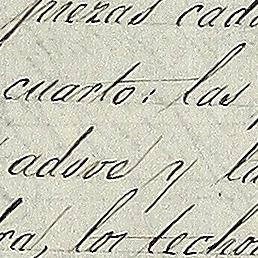 piezas cada
cuarto: las
adove y la
ra, los techos